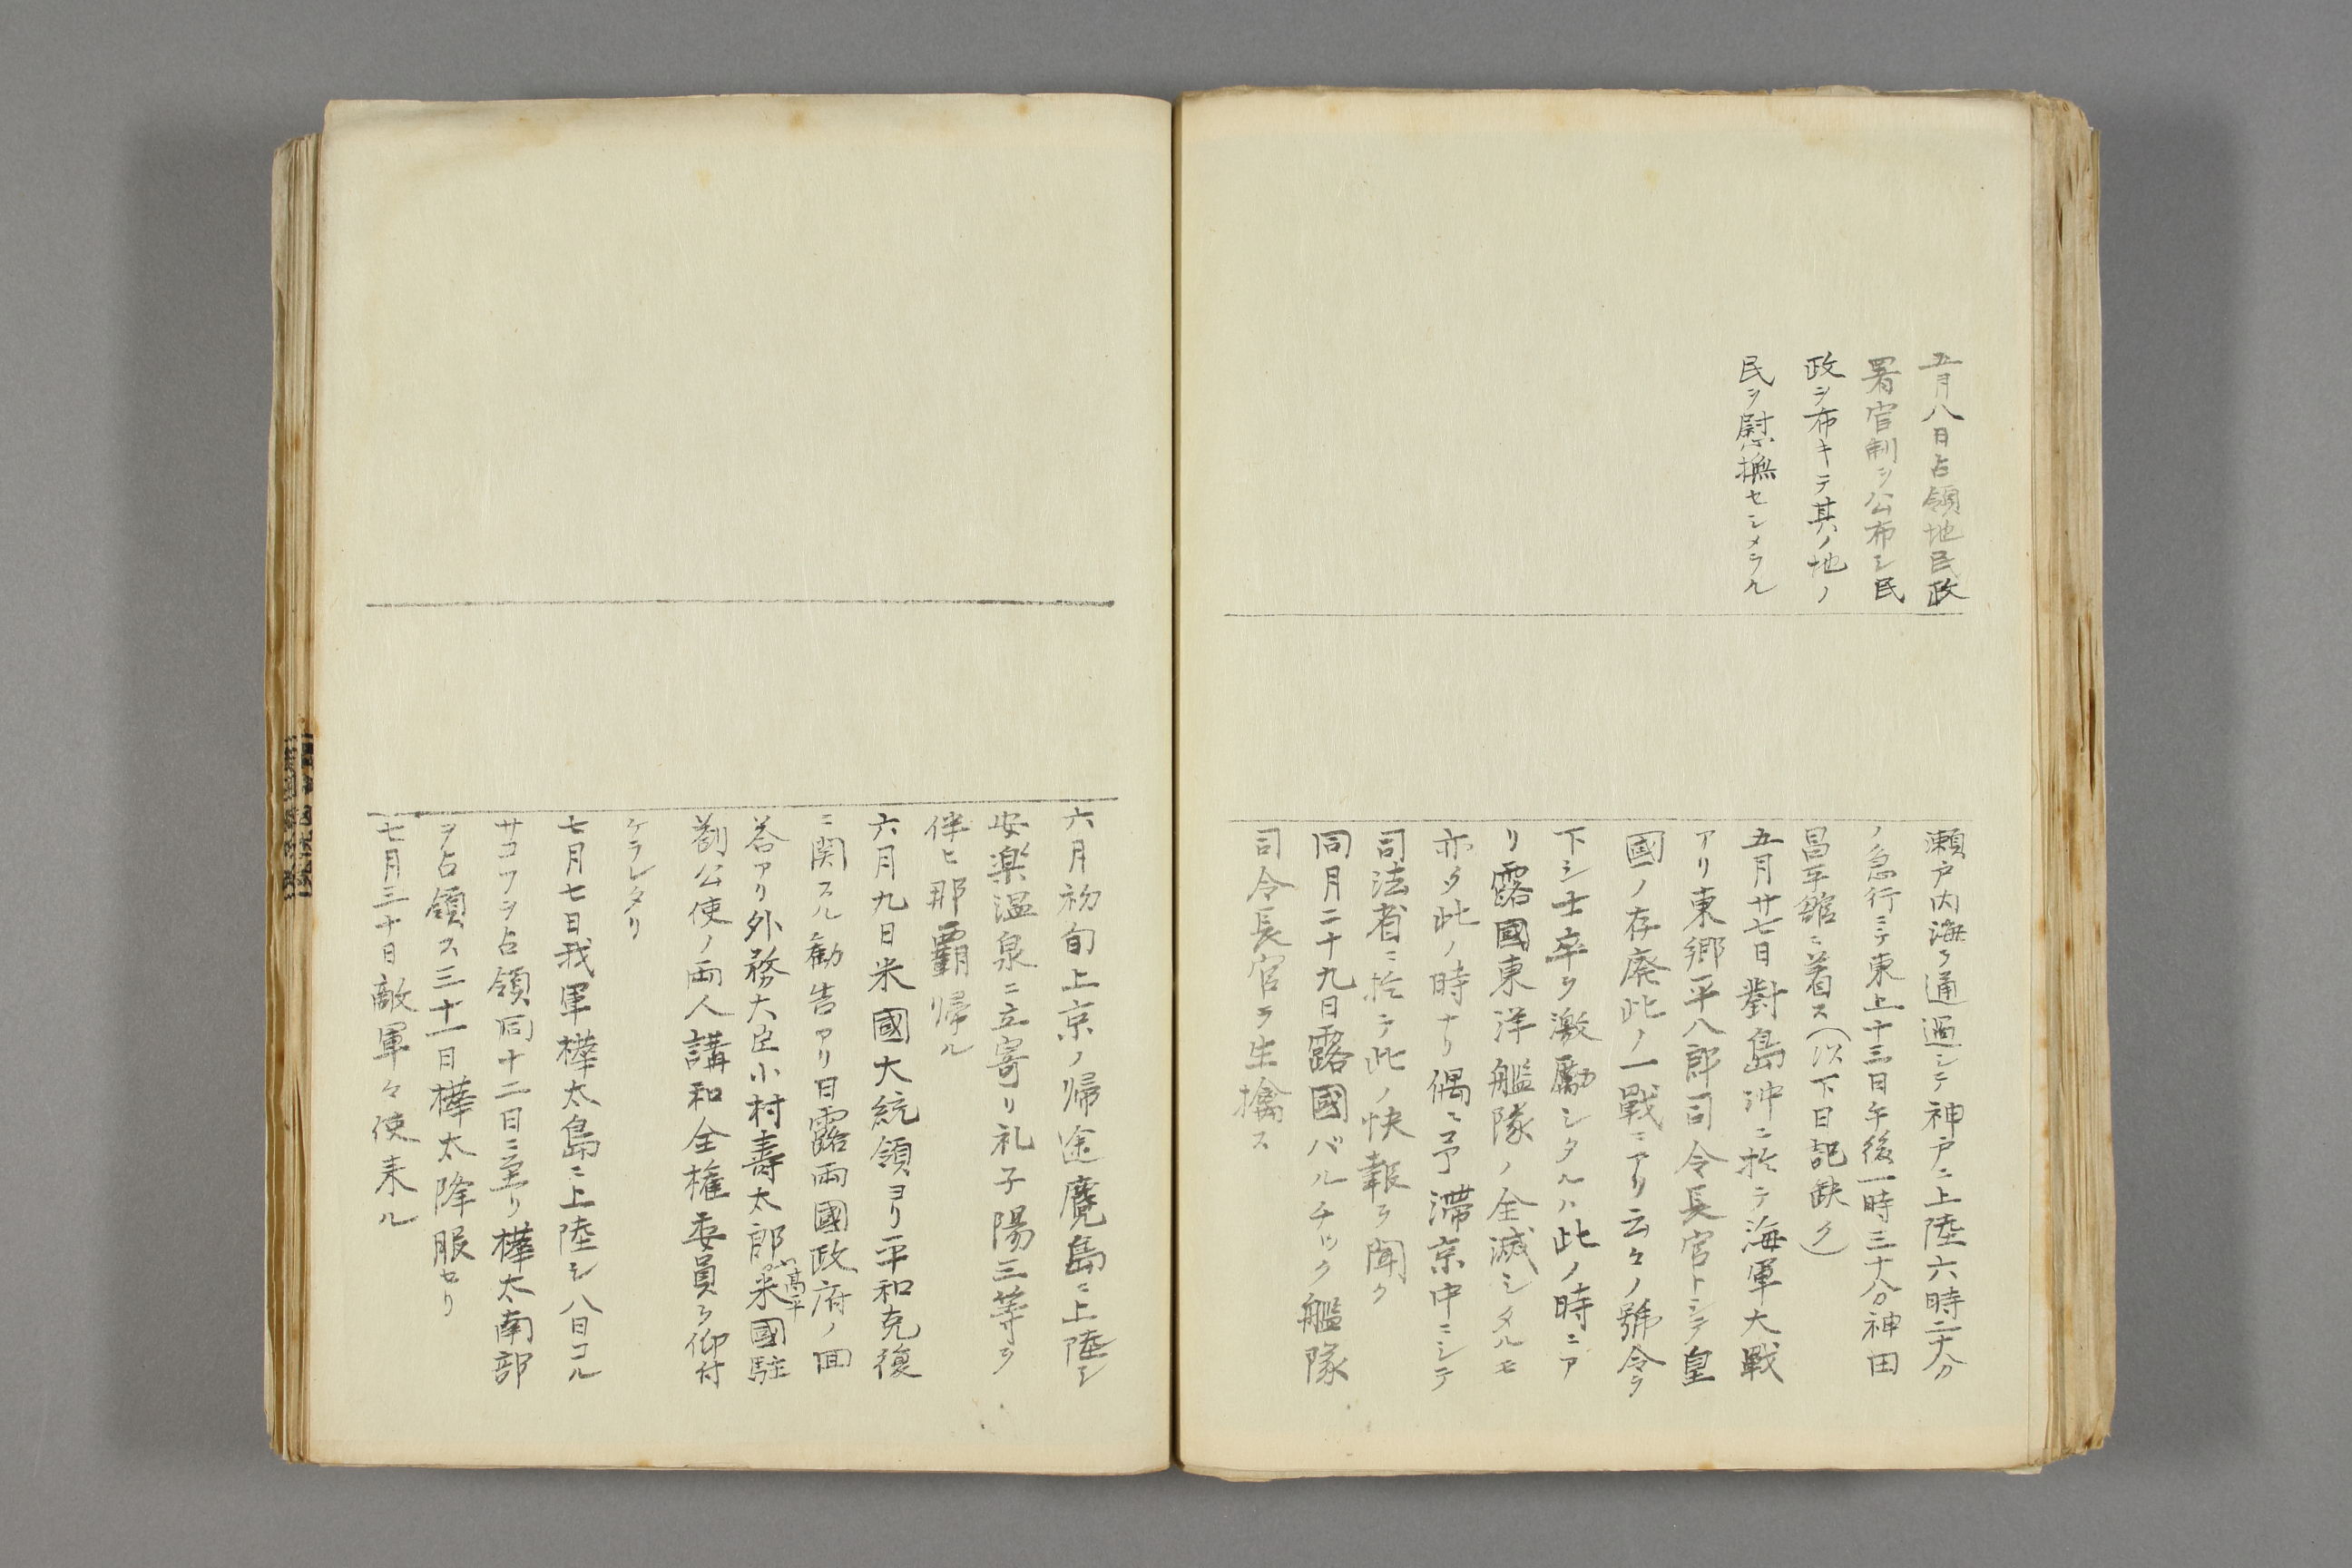 五月八日占領地民政
署官制ヲ公布シ民
政ヲ布キテ其ノ地ノ
民ヲ慰撫セシメラル
瀬戸内海ヲ通過シテ神戸ニ上陸六時二十分
ノ急行ニテ東上十三日午後一時三十分神田
昌平舘ニ着ス(以下日記缺ク)
五月廿七日對島沖ニ於テ海軍大戰
アリ東郷平八郎司令長官トシテ皇
國ノ存廢此ノ一戰ニアリ云々ノ號令ヲ
下シ士卒ヲ激勵シタルハ此ノ時ニア
リ露國東洋艦隊ノ全滅シタルモ
亦タ此ノ時ナリ偶々予滯京中ニシテ
司法省ニ於テ此ノ快報ヲ聞ク
同月二十九日露國バルチック艦隊
司令長官ヲ生擒ス
六月初旬上京ノ帰途麑島ニ上陸シ
安楽温泉ニ立寄リ礼子陽三等ヲ
伴ヒ那覇ニ帰ル
六月九日米國大統領ヨリ平和克復
ニ関スル勧告アリ日露兩國政府ノ回
答アリ外務大臣小村壽太郎米國駐
高平
剳公使ノ両人講和全権委員ヲ仰付
ケラレタリ
七月七日我軍樺太島ニ上陸シ八日コル
サコフヲ占領同十二日ニ至リ樺太南部
ヲ占領ス三十一日樺太降服セリ
七月三十日敵軍々使来ル